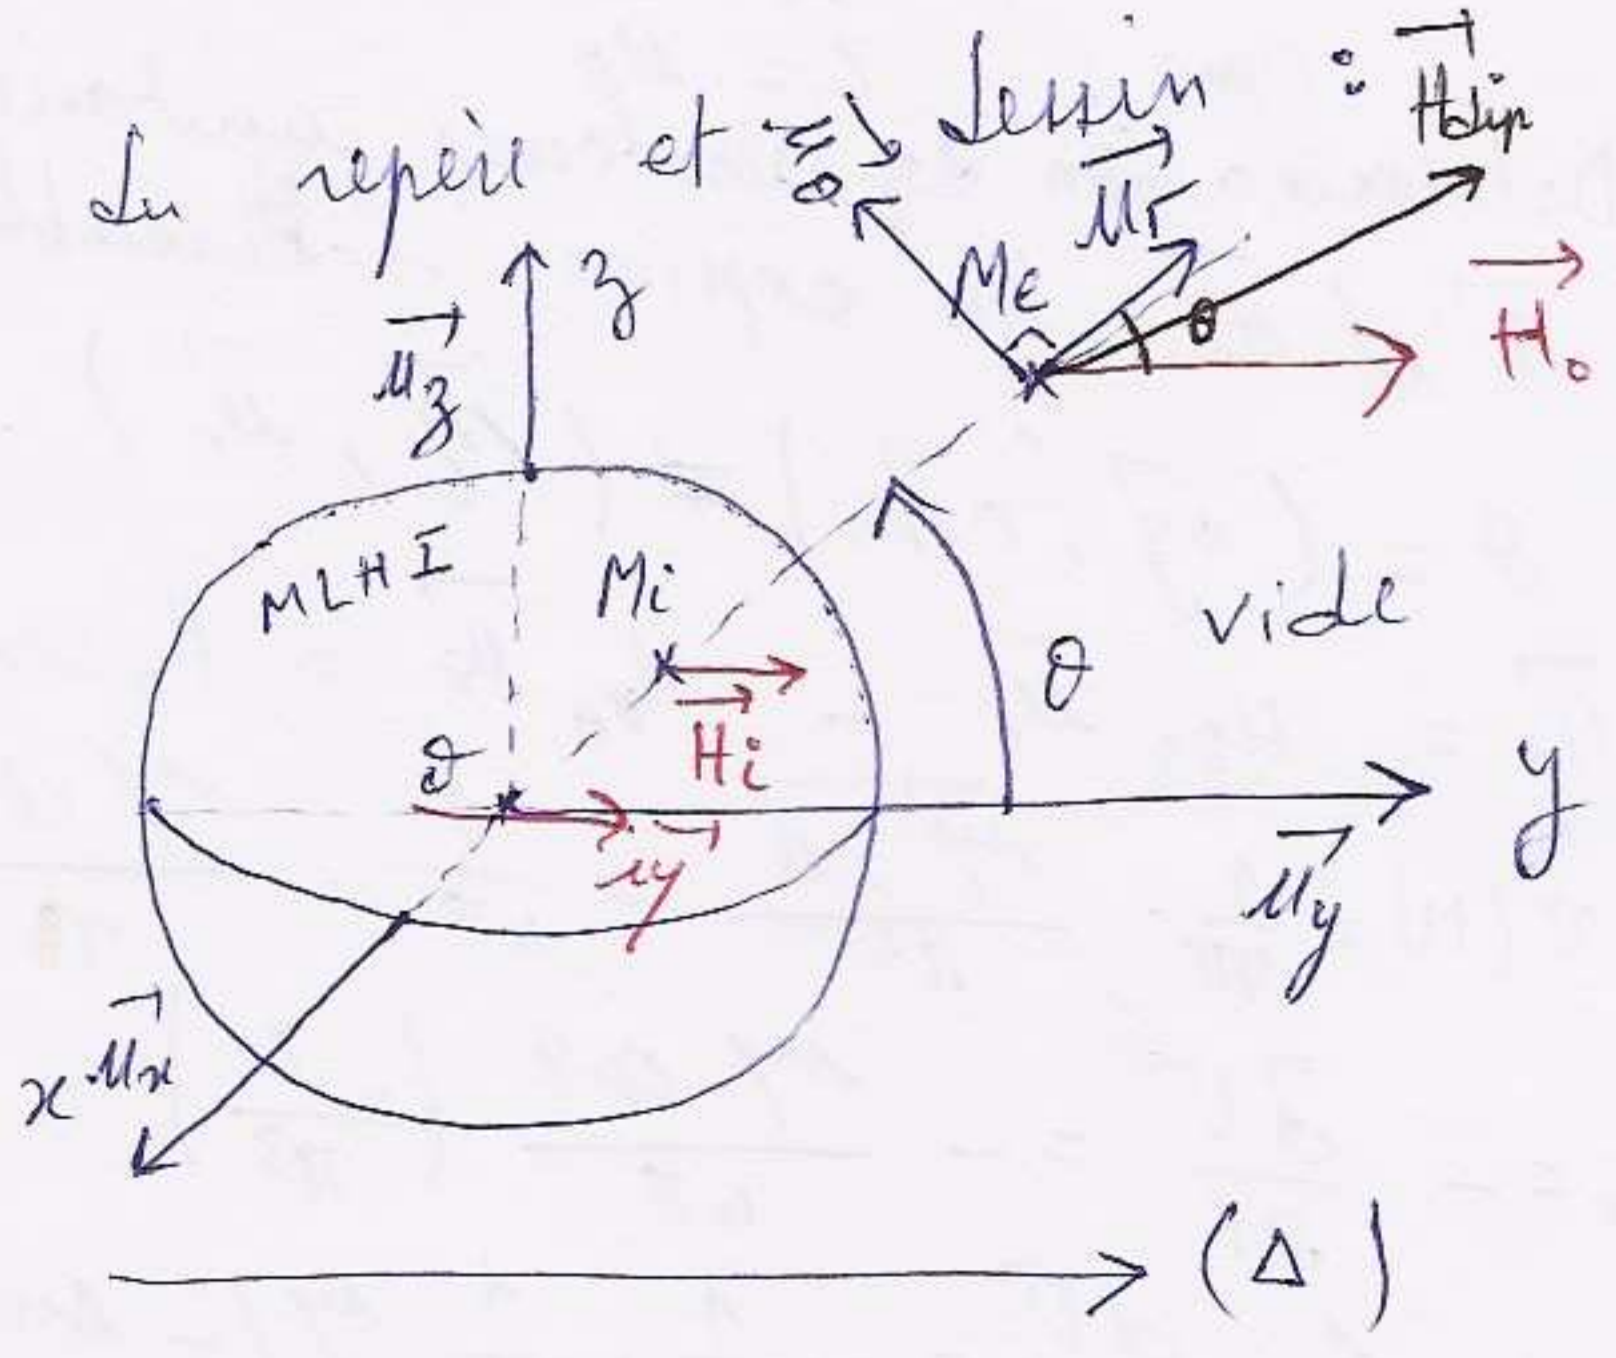 Le repère et le dessin :
Hdip
uθ
ur
Me
θ
H₀
z
uz
MLHI
Mi
vide
θ
Hi
O
y
uy
x ux
(Δ)